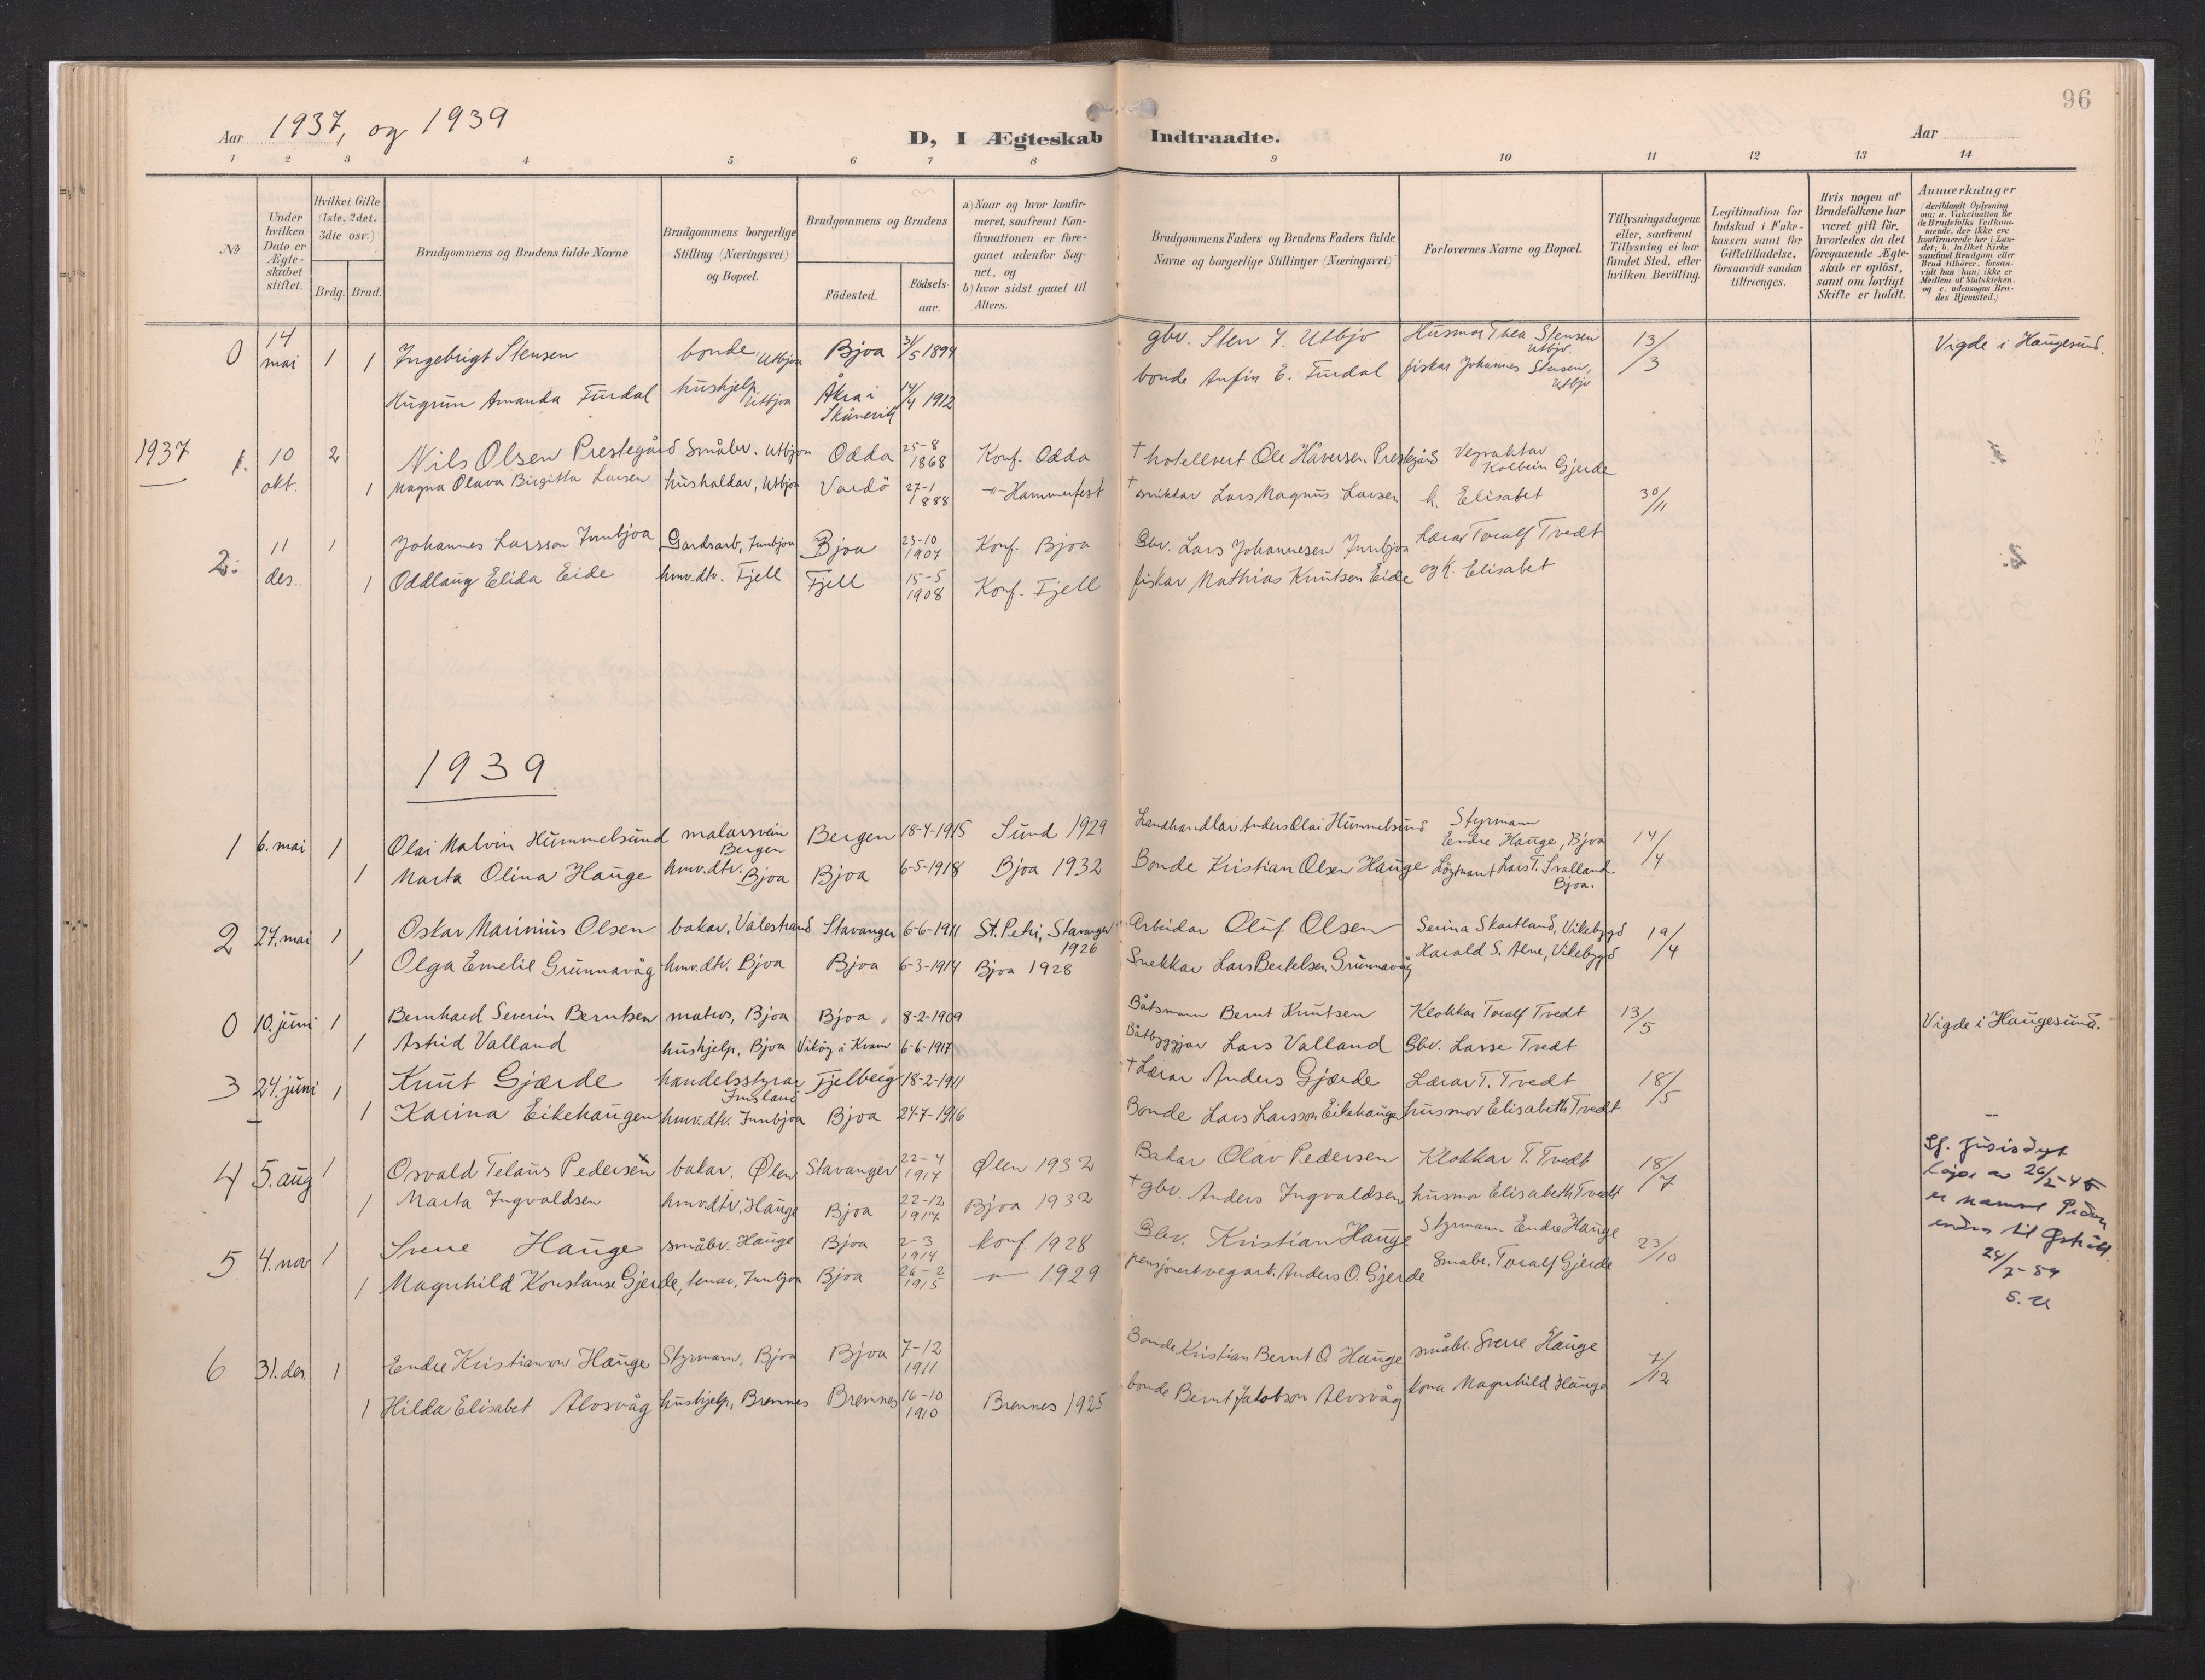 96
Aar 1937, og 1939
D, I Ægteskab Indtraadte.
Aar
1 2 3 4 5 6 7 8 9 10 11 12 13 14
No
Under hvilken Dato er Ægteskabet stiftet.
Hvilket Gifte (1ste, 2det, 3die osv.)
Brdg. Brud.
Brudgommens og Brudens fulde Navne
Brudgommens borgerlige Stilling (Næringsvei) og Bopæl.
Brudgommens og Brudens
Fødested.
Fødselsaar.
a) Naar og hvor konfirmeret, saafremt Konfirmationen er foregaaet udenfor Sognet, og
b) hvor sidst gaaet til Alters.
Brudgommens Faders og Brudens Faders fulde Navne og borgerlige Stillinger (Næringsvei)
Forlovernes Navne og Bopæl.
Tillysningsdagene eller, saafremt Tillysning ei har fundet Sted, efter hvilken Bevilling.
Legitimation for Indskud i Enkekassen samt for Giftetilladelse, forsaavidt saadan tiltrænges.
Hvis nogen af Brudefolkene har været gift før, hvorledes da det foregaaende Ægteskab er opløst, samt om lovligt Skifte er holdt.
Anmerkninger
0 14 mai 1 Ingebrigt Stensen bonde, Utbjoa Bjoa 31/5 1894 gbr. Sten Y. Utbjo Husmor Thea Stensen Utbjo. 13/3 Vigde i Haugesund.
1 Hugrun Amanda Furdal hushjelp, Utbjoa Åkra i Skånevik 14/4 1912 bonde Anfin E. Furdal fiskar Johannes Stensen, Utbjo
1937
1. 10 okt. 2 Nils Olsen Prestegård Småbr. Utbjoa Odda 25-8 1868 Konf. Odda † hotellvert Ole Håversen Prestegård Vegvaktar Kolbein Gjerde
1 Magna Olava Birgitta Larsen hushaldar, Utbjoa Vardö 27-1 1888 -"- Hammerfest † snikkar Lars Magnus Larsen k. Elisabet 30/11
2. 11 des. 1 Johannes Larsson Innbjoa Gardsarb, Innbjoa Bjoa 23-10 1907 Konf. Bjoa Gbr. Lars Johannesen Innbjoa Lærar Toralf Tvedt
1 Oddlaug Elida Eide hmv.dtr. Fjell Fjell 15-5 1908 Konf. Fjell fiskar Mathias Knutsen Eide og k. Elisabet
1939
1 6. mai 1 Olai Malvin Hummelsund malarsvein Bergen Bergen 18-4-1915 Sund 1929 Landhandlar Anders Olai Hummelsund Styrmann Endre Hauge, Bjoa 14/4
1 Marta Olina Hauge hmv.dtr. Bjoa Bjoa 6-5-1918 Bjoa 1932 Bonde Kristian Olsen Hauge Løytnant Lars T. Svalland Bjoa.
2 27. mai 1 Oskar Marinius Olsen bakar, Valestrand Stavanger 6-6-1911 St. Petri, Stavanger 1926 Arbeidar Oluf Olsen Serina Skartland, Vikebygd 19/4
1 Olga Emelie Grunnavåg hmv.dtr. Bjoa Bjoa 6-3-1914 Bjoa 1928 Snekkar Lars Bertelsen Grunnavåg Harald S. Alne, Vikebygd
0 10. juni 1 Bernhard Severin Berntsen matros, Bjoa Bjoa 8-2-1909 Båtsmann Bernt Knutsen Klokkar Toralf Tvedt 13/5 Vigde i Haugesund.
1 Astrid Valland hushjelp, Bjoa Vikøy i Kvam 6-6-1917 Båtbyggjar Lars Valland Gbr. Lasse Tvedt
3 24. juni 1 Knut Gjærde handelsstyrar Imsland Fjelberg 18-2-1911 † Lærar Anders Gjærde Lærar T. Tvedt 18/5
1 Karina Eikehaugen hmv.dtr. Innbjoa Bjoa 24-7-1916 Bonde Lars Larsson Eikehaugen husmor Elisabeth Tvedt
4 5. aug 1 Osvald Telaus Pedersen bakar, Ølen Stavanger 22-4 1917 Ølen 1932 Bakar Olav Pedersen Klokkar T. Tvedt 18/7
1 Marta Ingvaldsen hmv.dtr. Hauge Bjoa 22-12 1917 Bjoa 1932 † gbr. Anders Ingvaldsen husmor Elisabeth Tvedt
26/2-45
24/7-59
5 4. nov 1 Sverre Hauge småbr. Hauge Bjoa 2-3 1914 konf. 1928 Gbr. Kristian Hauge Styrmann Endre Hauge 23/10
1 Magnhild Konstanse Gjerde, Innbjoa Bjoa 26-2 1915 -"- 1929 pensjonert vegarb. Anders O. Gjerde Småbr. Toralf Gjerde
6 31. des. 1 Endre Kristianson Hauge Styrmann, Bjoa Bjoa 7-12 1911 Bonde Kristian Bernt O. Hauge småbr. Sverre Hauge 7/12
1 Hilda Elisabet Alvsvåg hushjelp, Bremnes Bremnes 16-10 1910 Bremnes 1925 bonde Bernt Jakobson Alvsvåg kona Magnhild Hauge